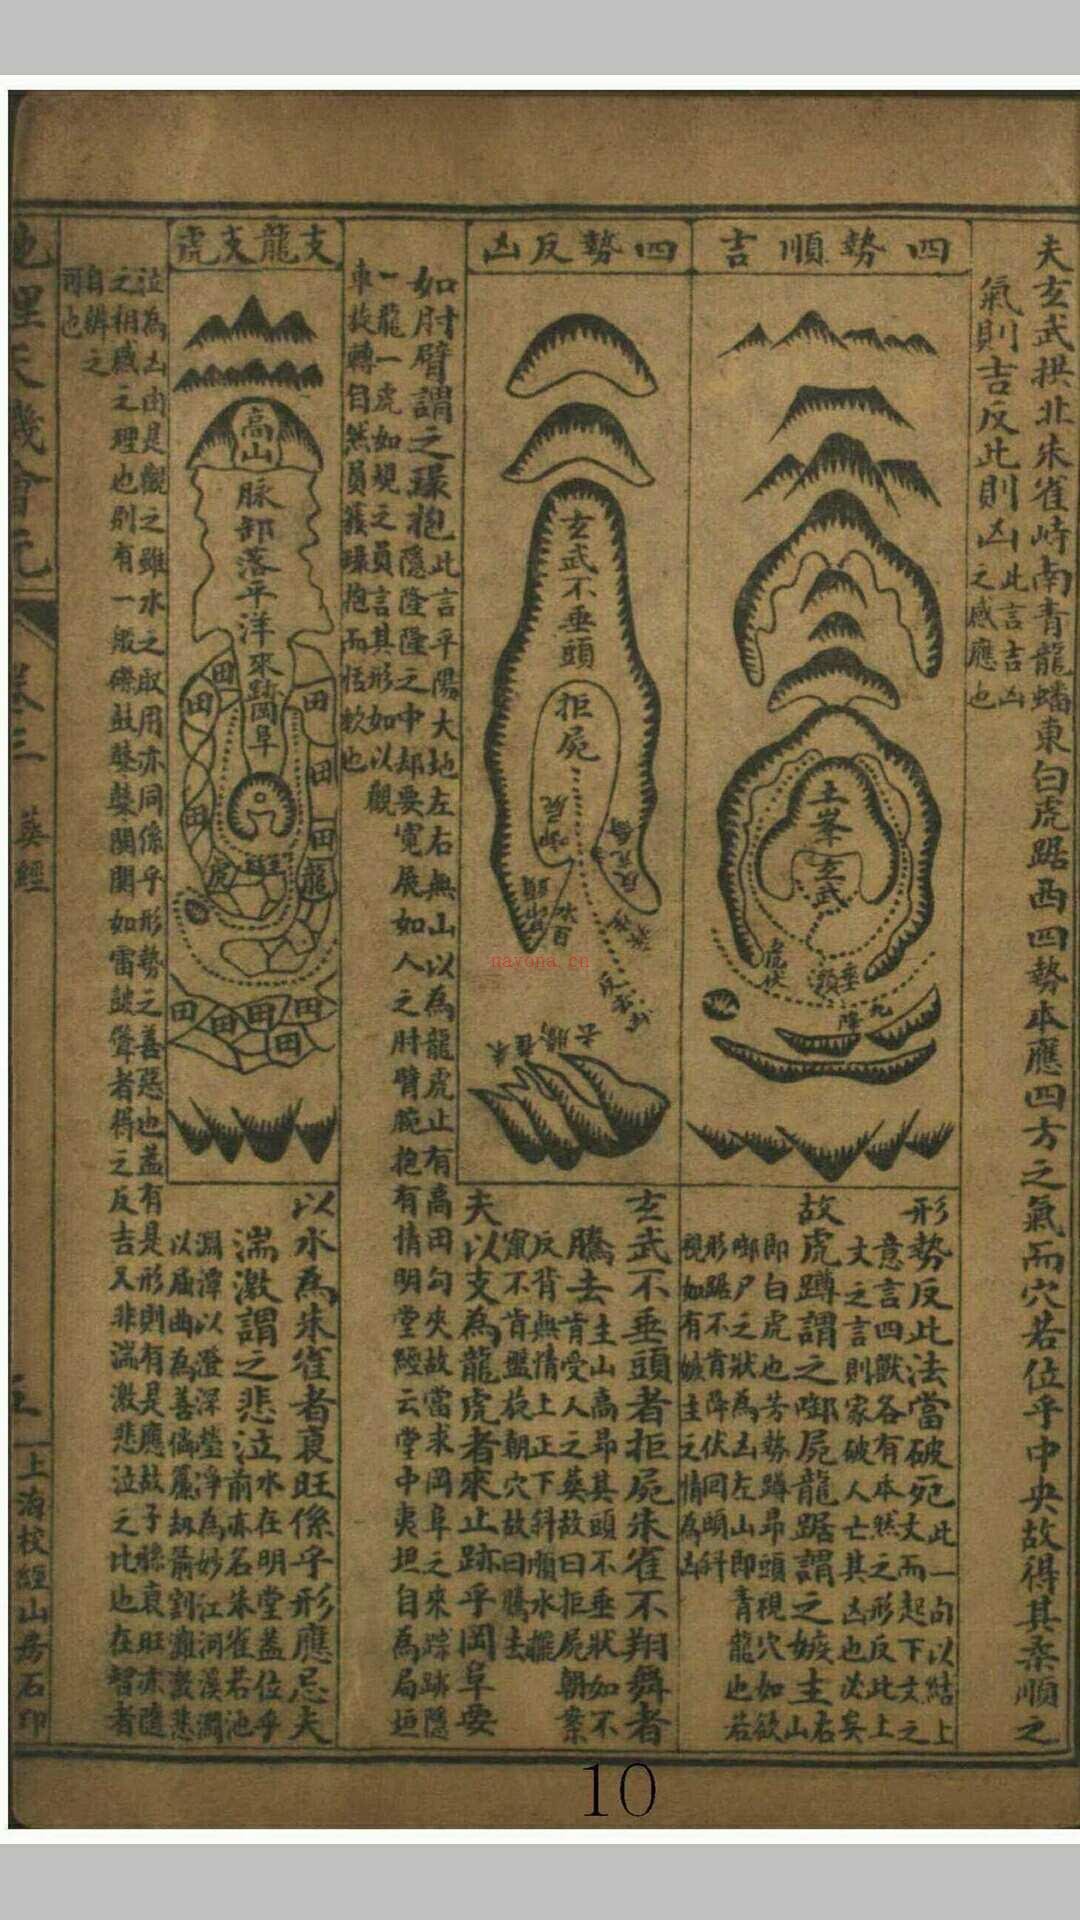 夫玄武拱北朱雀峙南青龍蟠東白虎踞西四勢本應四方之氣而穴若位乎中央故得其柔順之
氣則吉反此則凶
此言吉凶
之感應也
四勢順吉
土峯玄武
垂
頭
虎伏
降
九
形勢反此法當破死
此一句以結上
文而起下文之
意言四獸各有本然之形反此上
文之言則家破人亡其凶也決矣
故虎蹲謂之啣屍龍踞謂之嫉主
右山
即白虎也若勢蹲昂頭視穴如欲
啣尸之狀為凶左山即青龍也若
形踞不肯降伏回頭斜
視如有嫉主之情為凶
四勢反凶
玄武不垂頭
拒屍
啣屍
玄武不垂頭者拒屍朱雀不翔舞者
騰去
主山高昂其頭不垂狀如不
肯受人之葬故曰拒屍朝案
反背無情上正下斜順水擺
竄不肯盤旋朝穴故曰騰去
夫以支為龍虎者來止跡乎岡阜要
如肘臂謂之環抱
此言平陽大地左右無山以為龍虎止有高田勾夾故當求岡阜之來踪跡隱
隱隆隆之中却要寬展如人之肘臂腕抱有情明堂經云堂中夷坦自為局垣
一龍一虎如規之員言其形如以觀
車故轉自然員簇環抱而恬軟也
支龍支虎
高山
脉卸落平洋來蹟岡阜
田
田
田
田
田
田
虎
龍
田
田
田
田
田
以水為朱雀者衰旺係乎形應忌夫
湍激謂之悲泣
水在明堂蓋位乎
前亦名朱雀若池
淵潭以澄深瑩淨為妙江河溪澗
以屈曲為善倘廉劫箭割灘數悲
泣為凶由是觀之雖水之取用亦同係乎形勢之善惡也蓋有是形則有是應故子孫衰旺亦隨
之相感之理也則有一般磔鼓鼕鼕闐闐如雷皷聳者得之反吉又非湍激悲泣之比也在智者
自辨之
可也
地理天機會元
卷三
葬經
五
上海校經山房石印
navona.cn
10